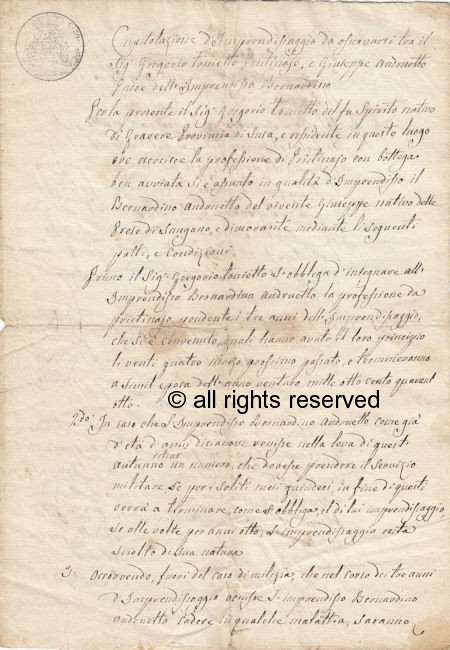 Capitolazione d'Imprendissaggio da osservarsi tra il
Sig.r Gregorio Tonietto Pristinajo, e Giuseppe Andruetto
Padre dell'Imprendisso Bernardino
Per la presente il Sig.r Gregorio Tonietto del fu Spirito nativo
di Gravere Provincia di Susa, e residente in questo luogo
ove esercisce la professione di Pristinajo con bottega
ben avviata si è assunto in qualità d'Imprendisso il
Bernardino Andruetto del vivente Giuseppe nativo delle
Prese di Sangano, e dimorante mediante li seguenti
patti, e Condizioni
Primo il Sig.r Gregorio Tonietto s'obbliga d'insegnare all'
Imprendisso Bernardino Andruetto la professione da
pristinajo pendente i tre anni dell'Imprendissaggio,
che si è convenuto, quali hanno avuto il loro principio
li venti quatro marzo prossimo passato, e termineranno
a simil epoca dell'anno venturo mille otto cento quarant'
otto.
© all rights reserved
2.do In caso che l'Imprendisso Bernardino Andruetto come già
d'età d'anni dicianove venisse nella leva di quest'
estrar
autunno un numero, che dovesse prendere il servizio
militare se per i soliti mesi quindeci, in fine di questi
verrà a terminare, come s'obbliga, el di lui imprendissaggio,
se alle volte per anni otto, l'imprendissaggio resta
sciolto di sua natura
3. Occorrendo, fuori del caso di milizia, che nel corso dei tre anni
d'Imprendissaggio venisse l'imprendisso Bernardino
Andruetto cadere in qualche malattia, saranno